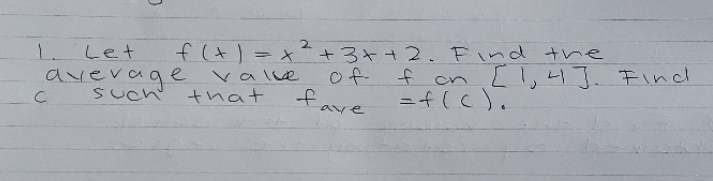 1. Let f(x) = x² + 3x + 2. Find the
average value of f on [1, 4]. Find
c such that fave = f(c).